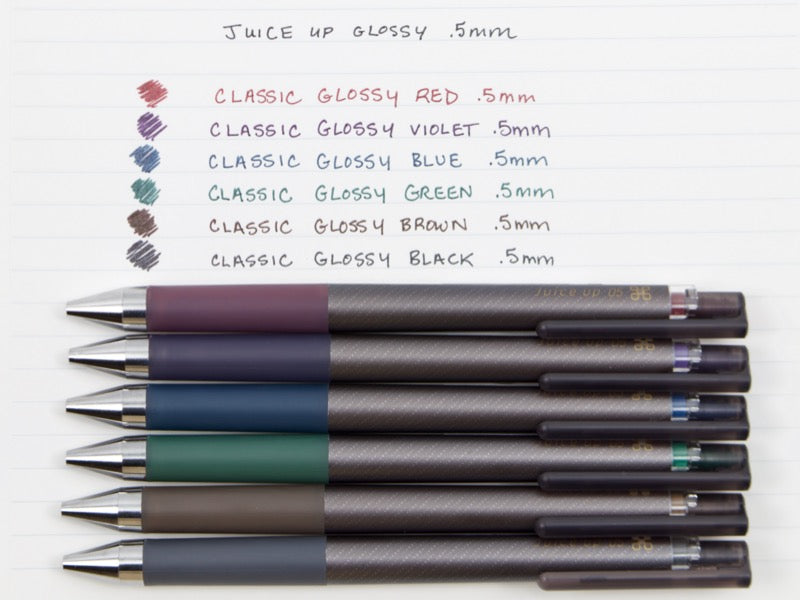 JUICE UP GLOSSY .5mm
CLASSIC GLOSSY RED .5mm
CLASSIC GLOSSY VIOLET .5mm
CLASSIC GLOSSY BLUE .5mm
CLASSIC GLOSSY GREEN .5mm
CLASSIC GLOSSY BROWN .5mm
CLASSIC GLOSSY BLACK .5mm
Juice up 05
Juice up 05